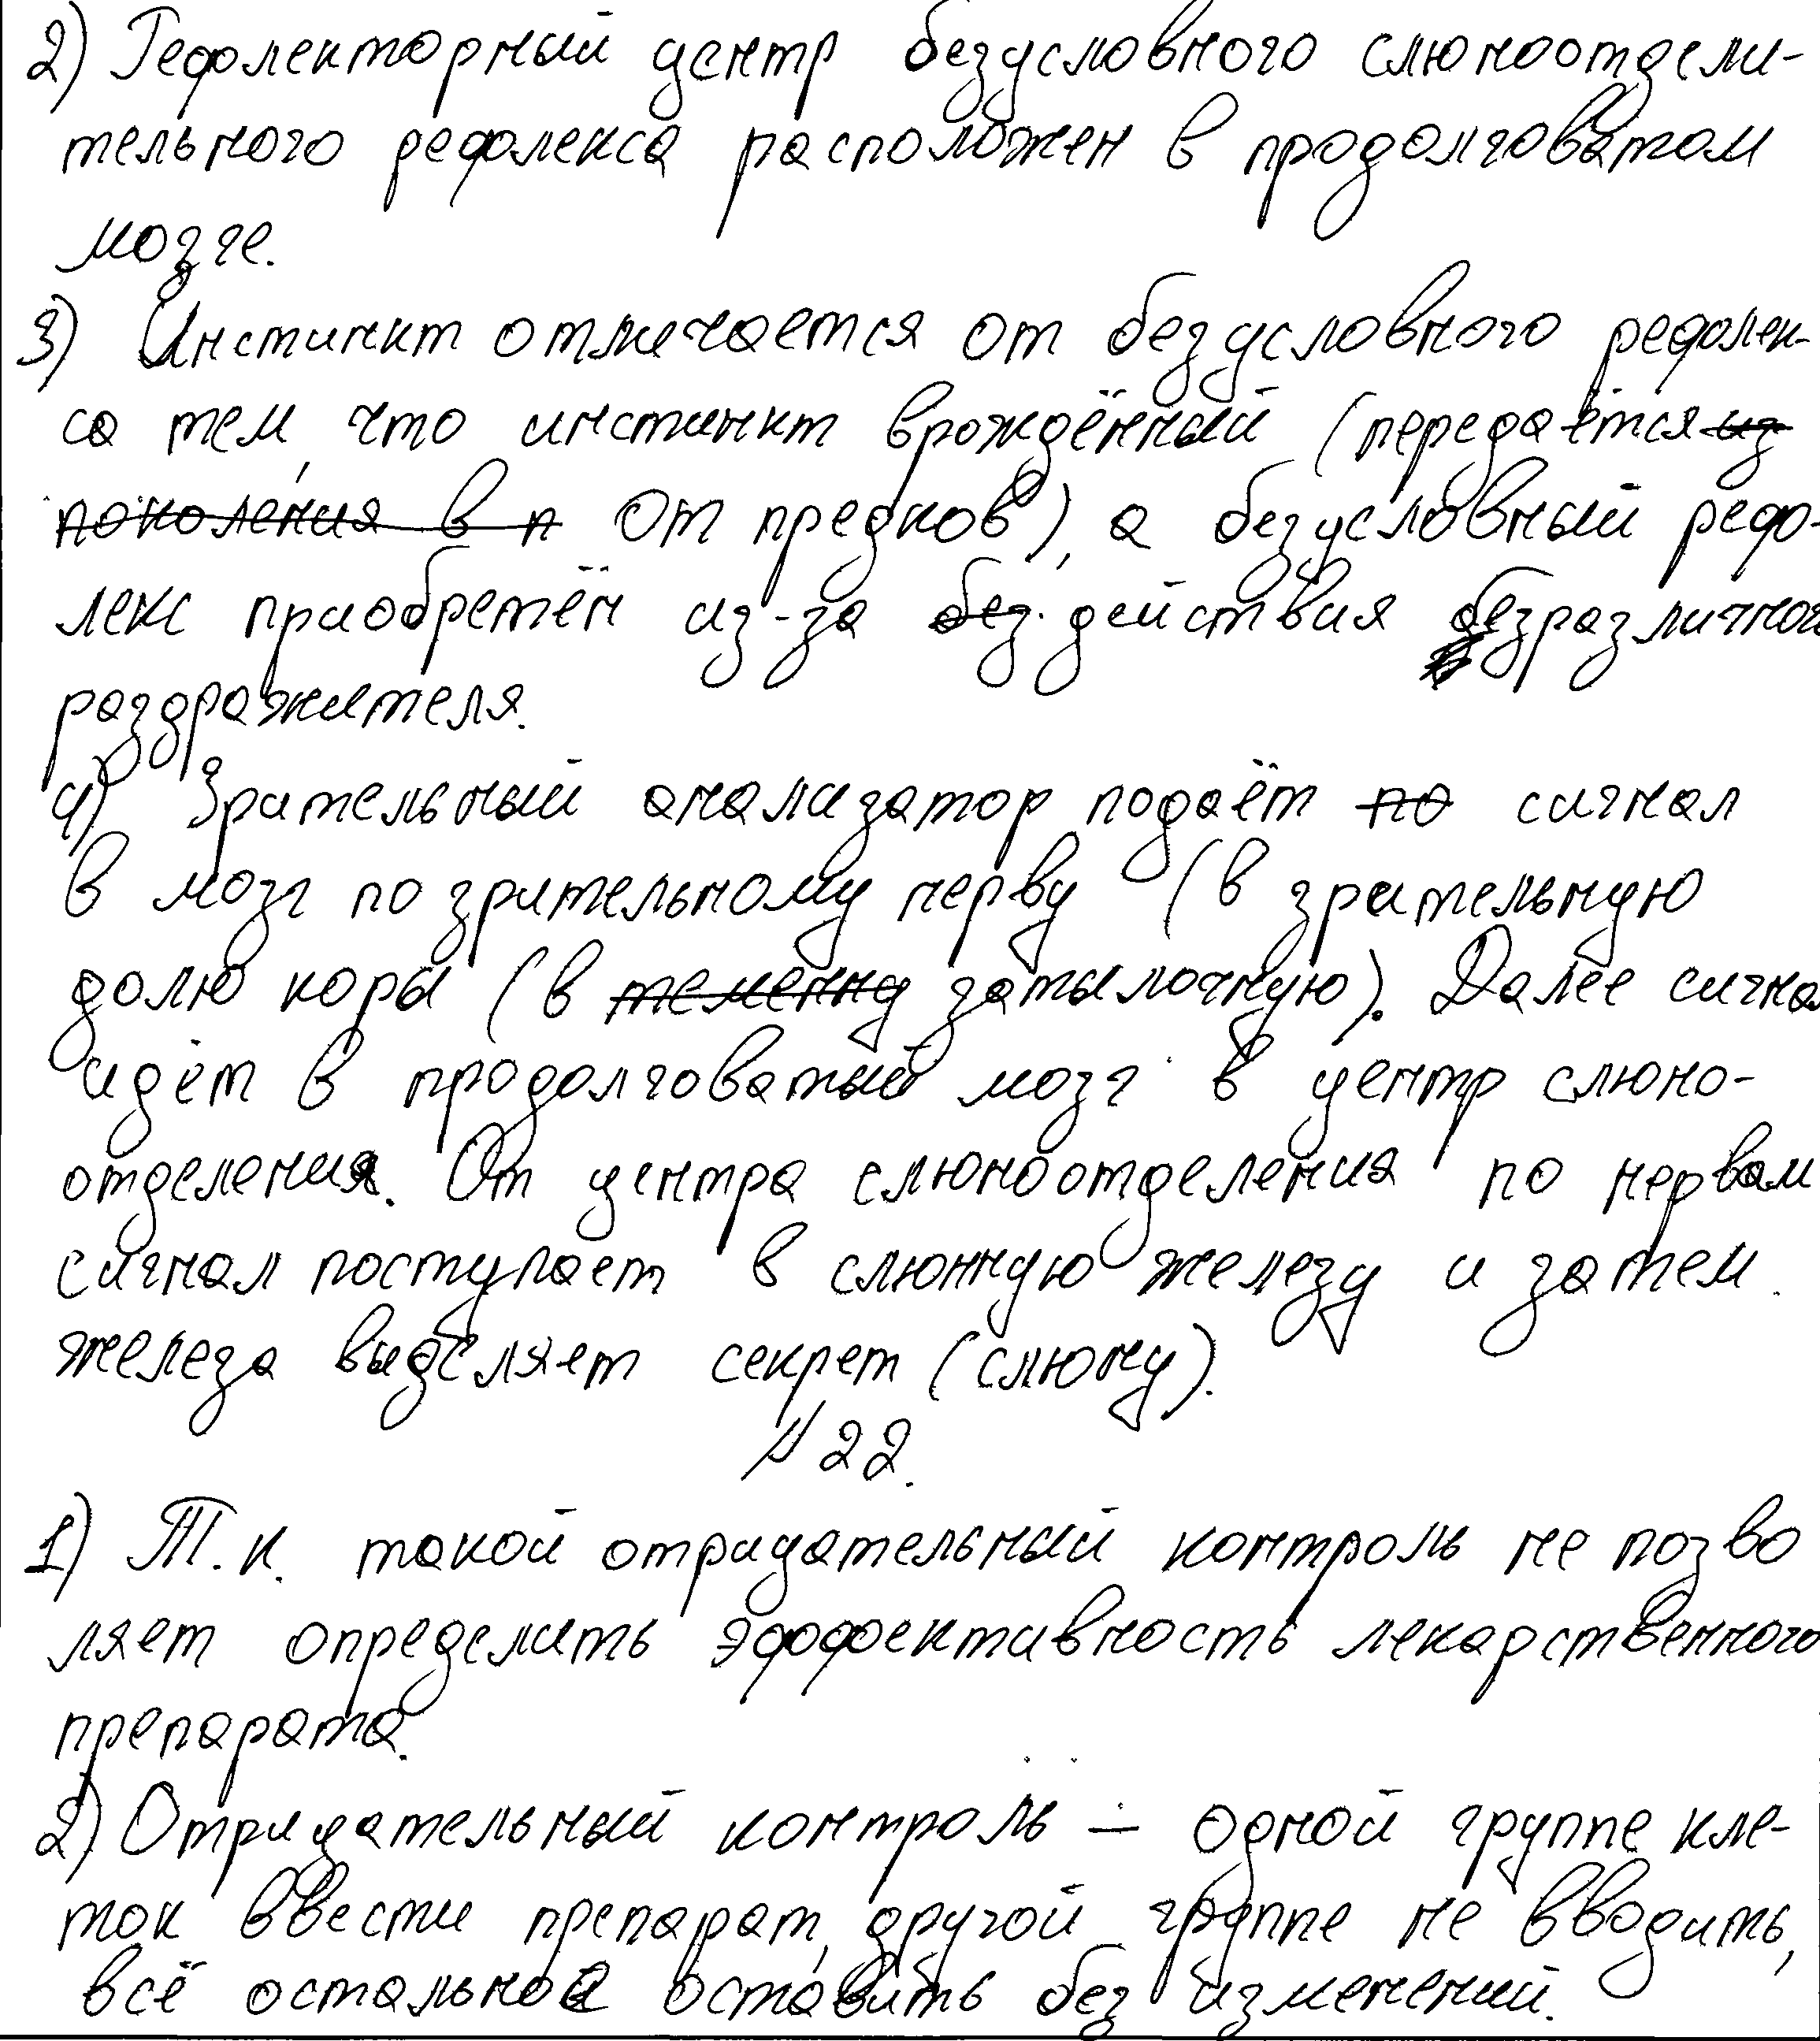 2) Рефлекторный центр безусловного слюноотдели-
тельного рефлекса расположен в продолговатом
мозге.
3) Инстинкт отличается от безусловного рефлек-
са тем, что инстинкт врождённый (передаётся из
поколения в п от предков), а безусловный реф-
лекс приобретён из-за без. действия безразличног
раздражителя.
4) Зрительный анализатор подаёт по сигнал
в мозг по зрительному нерву (в зрительную
долю коры (в теменну затылочную). Далее сигнал
идёт в продолговатый мозг в центр слюно-
отделения. От центра слюноотделения по нервам
сигнал поступает в слюнную железу и затем
железа выделяет секрет (слюну).
№ 22.
1) Т.к. такой отрицательный контроль не позво
ляет определить эффективность лекарственного
препарата.
2) Отрицательный контроль – одной группе кле-
ток ввести препарат, другой группе не вводить,
всё остальное оставить без изменений.